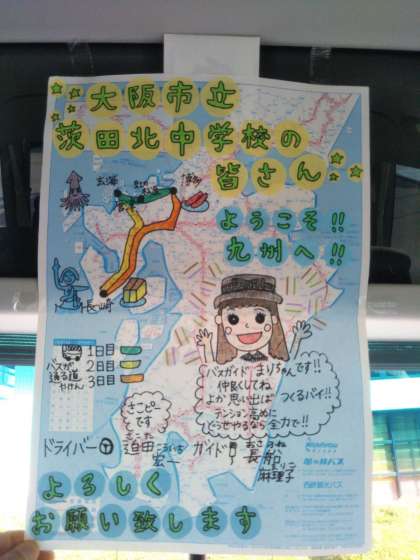 大阪市立
茨田北中学校の
皆さん
ようこそ!!
九州へ!!
玄海
博多
長崎
1日目
2日目
3日目
バスが
通る道
やけん
バスガイド まりちゃんです!!
仲良くしてね
よか思い出ば つくるバイ!!
テンション高めに
どうせやるなら全力で!!
さこピー
です
ドライバー
さこた こういち
迫田 宏一
ガイド
おさふね まりこ
長船 麻理子
西鉄観光バス
よろしく
お願い致します